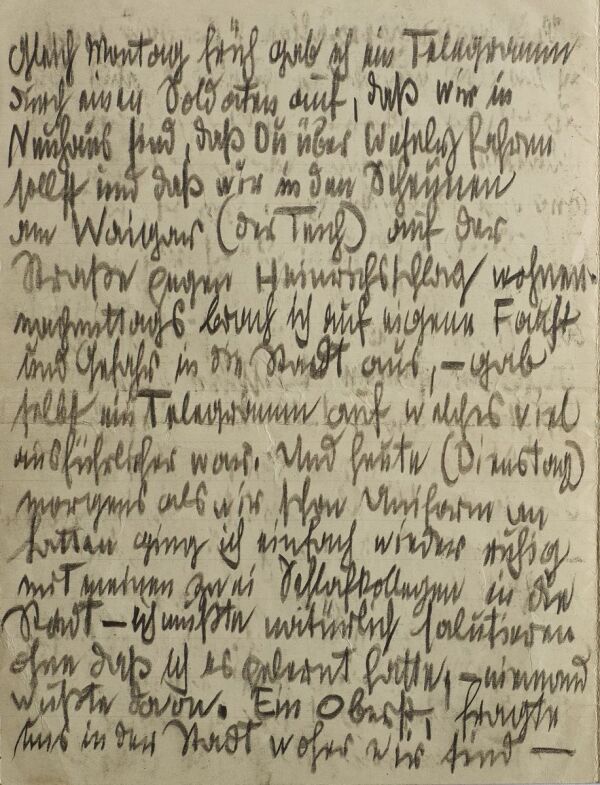 Gleich Montag früh gab ich ein Telegramm
durch einen Soldaten auf, daß wir in
Neuhaus sind, daß Du über Wesely fahren
sollst und daß wir in den Scheunen
am Waigar (der Teich) auf der
Straße gegen Heinrichsschlag wohnen.
nachmittags brach ich auf eigene Faust
und Gefahr in die Stadt aus, – gab
selbst ein Telegramm auf welches viel
ausführlicher war. Und heute (Dienstag)
morgens als wir schon Uniform an
hatten ging ich einfach wieder ruhig
mit meinen zwei Schlafkollegen in die
Stadt – ich mußte natürlich salutieren
ohne daß ich es gelernt hatte, – niemand
wußte davon. Ein Oberst, fragte
uns in der Stadt woher wir sind –